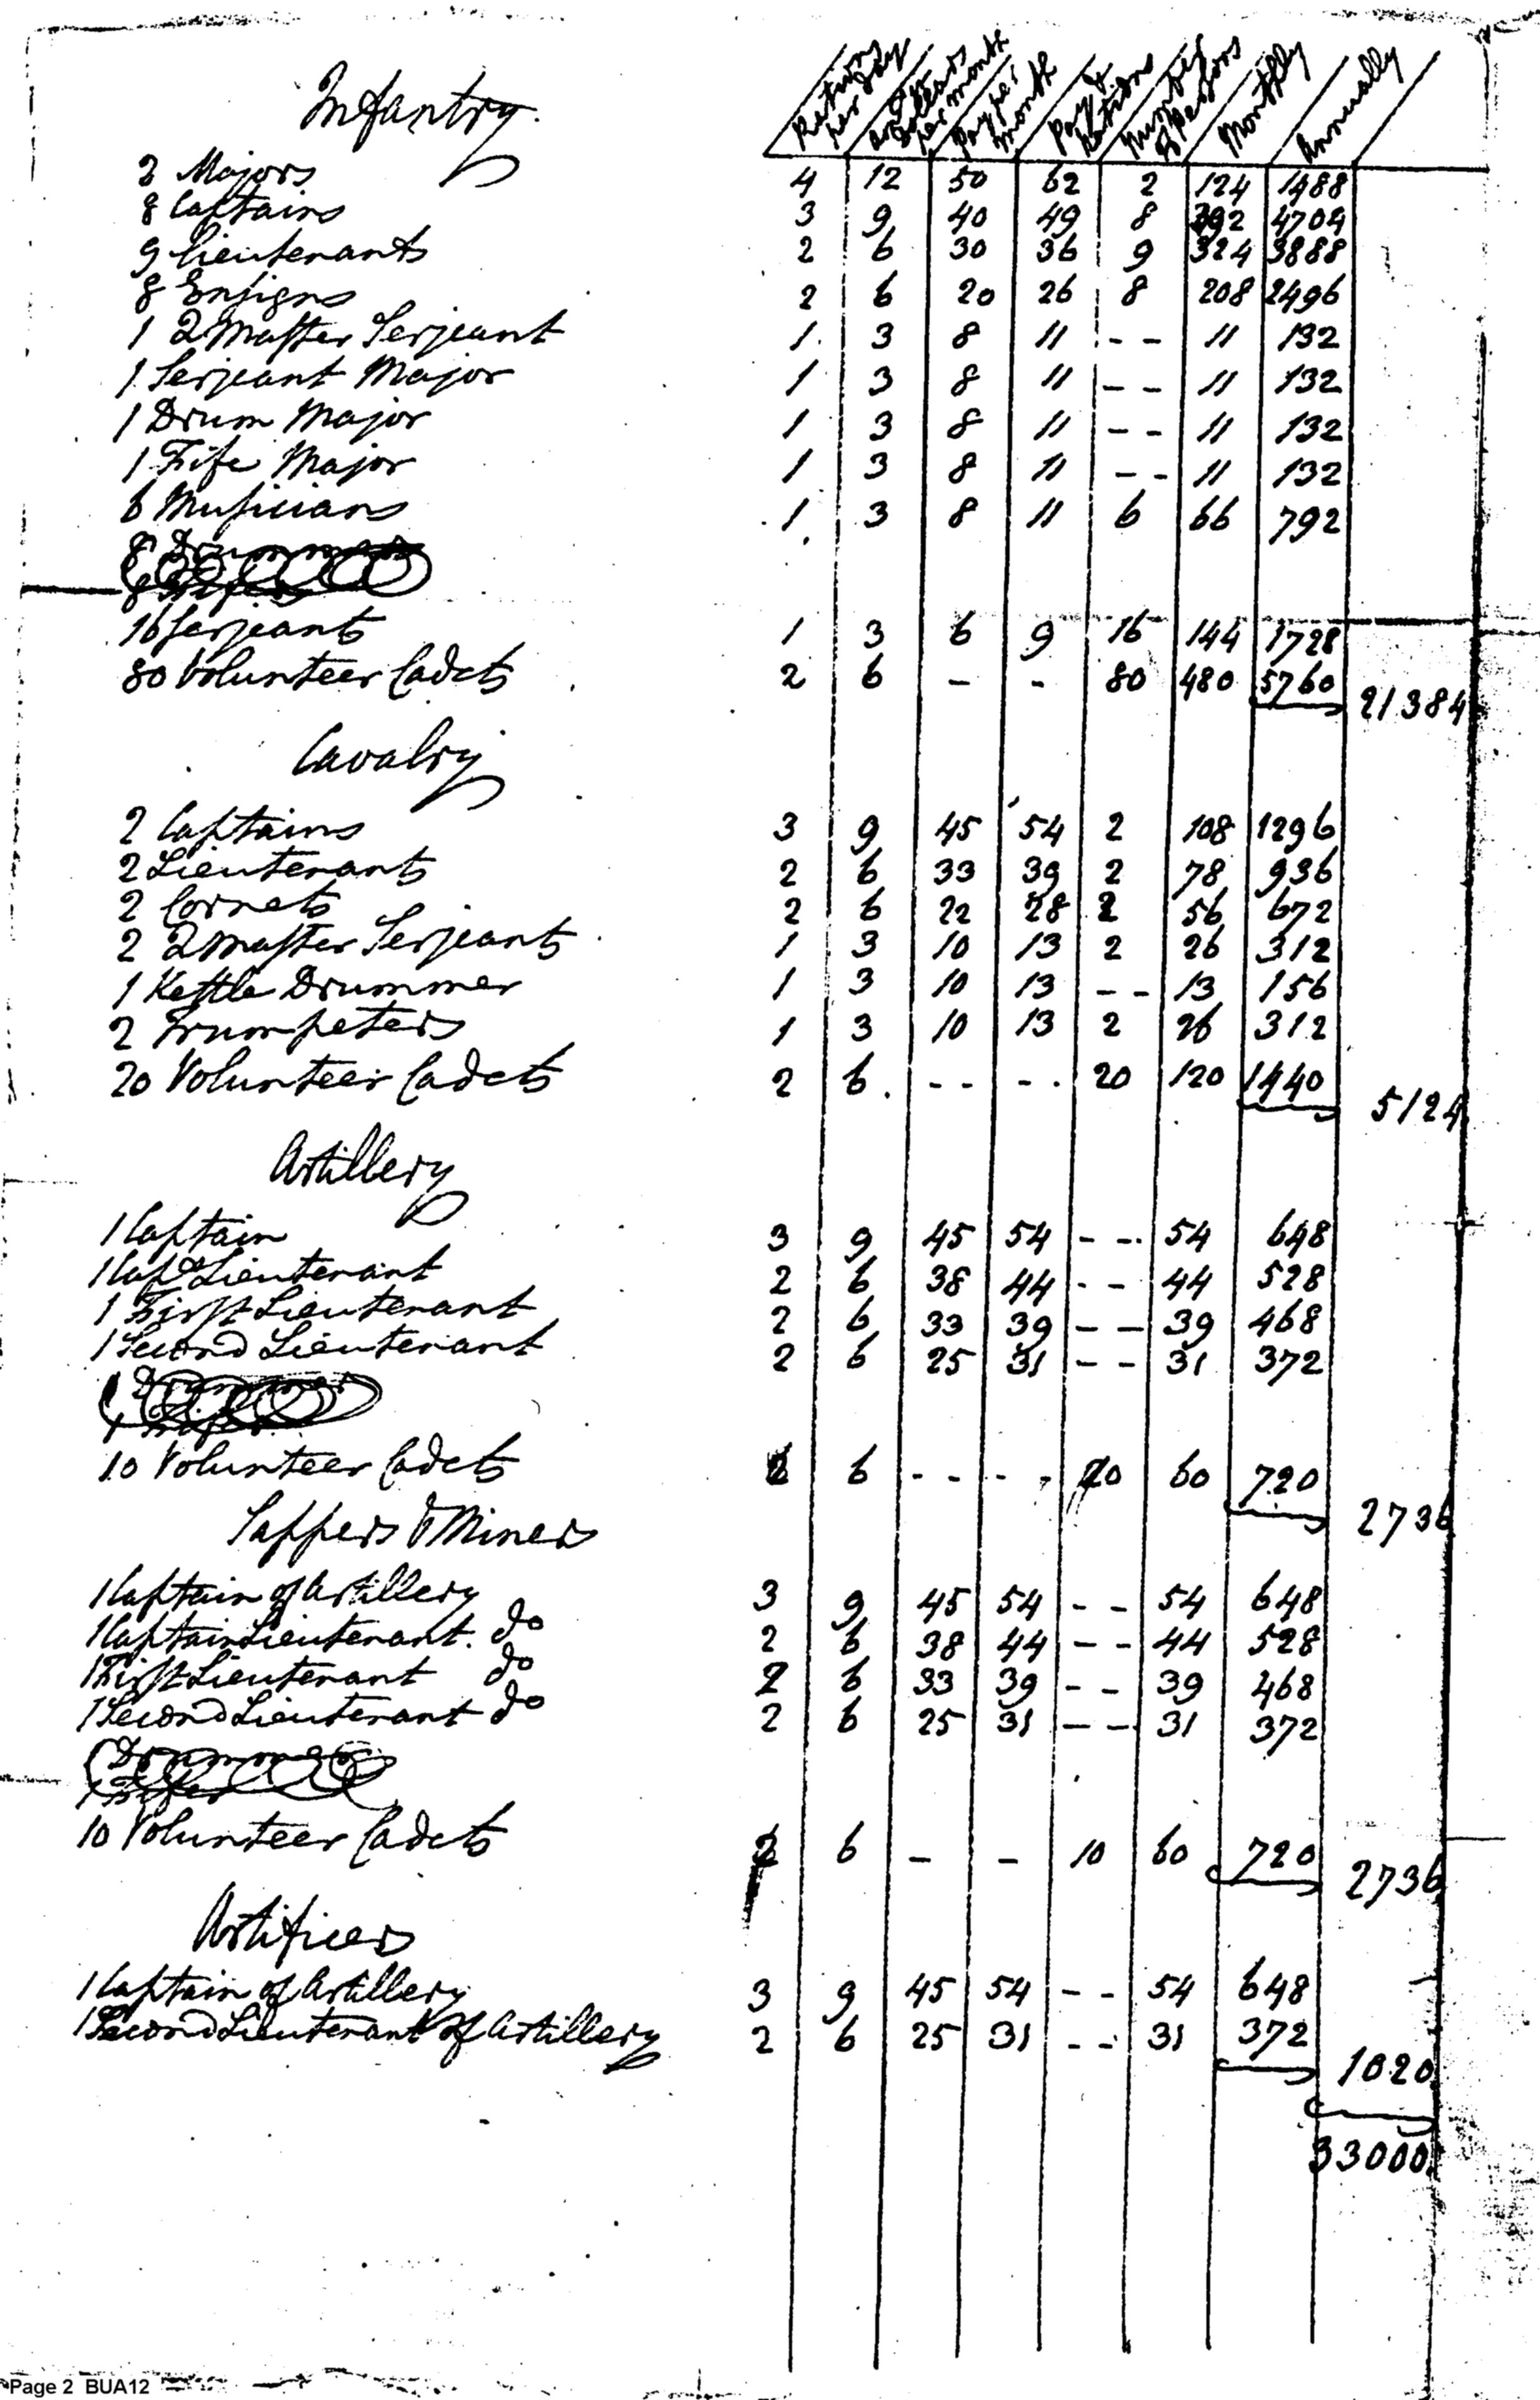 Infantry.
Rations per Day | or Dollars per month | Pay per month | Pay & Rations | Number of Persons | Monthly | Annually
2 Majors 4 12 50 62 2 124 1488
8 Captains 3 9 40 49 8 392 4704
9 Lieutenants 2 6 30 36 9 324 3888
8 Ensigns 2 6 20 26 8 208 2496
1 2 Master Serjeant 1 3 8 11 - - 11 132
1 Serjeant Major 1 3 8 11 - - 11 132
1 Drum Major 1 3 8 11 - - 11 132
1 Fife Major 1 3 8 11 - - 11 132
6 Musicians 1 3 8 11 6 66 792
8 Drummers
8 Fifers
16 Serjeants 1 3 6 9 16 144 1728
80 Volunteer Cadets 2 6 - - 80 480 5760 21384
Cavalry
2 Captains 3 9 45 54 2 108 1296
2 Lieutenants 2 6 33 39 2 78 936
2 Cornets 2 6 22 28 2 56 672
2 2 Master Serjeants 1 3 10 13 2 26 312
1 Kettle Drummer 1 3 10 13 - - 13 156
2 Trumpeters 1 3 10 13 2 26 312
20 Volunteer Cadets 2 6. - - - . 20 120 1440 5124
Artillery
1 Captain 3 9 45 54 - - 54 648
1 Capt Lieutenant 2 6 38 44 - - 44 528
1 First Lieutenant 2 6 33 39 - - 39 468
1 Second Lieutenant 2 6 25 31 - - 31 372
1 Drummer
1 Fifer
10 Volunteer Cadets 2 6 - - - - 10 60 720 2736
Sappers & Miners
1 Captain of Artillery 3 9 45 54 - - 54 648
1 Captain Lieutenant. do 2 6 38 44 - - 44 528
1 First Lieutenant do 2 6 33 39 - - 39 468
1 Second Lieutenant do 2 6 25 31 - - 31 372
1 Drummer
1 Fifer
10 Volunteer Cadets 2 6 - - 10 60 720 2736
Artificers
1 Captain of Artillery 3 9 45 54 - - 54 648
1 Second Lieutenant of Artillery 2 6 25 31 - - 31 372 1020
33000
Page 2 BUA12